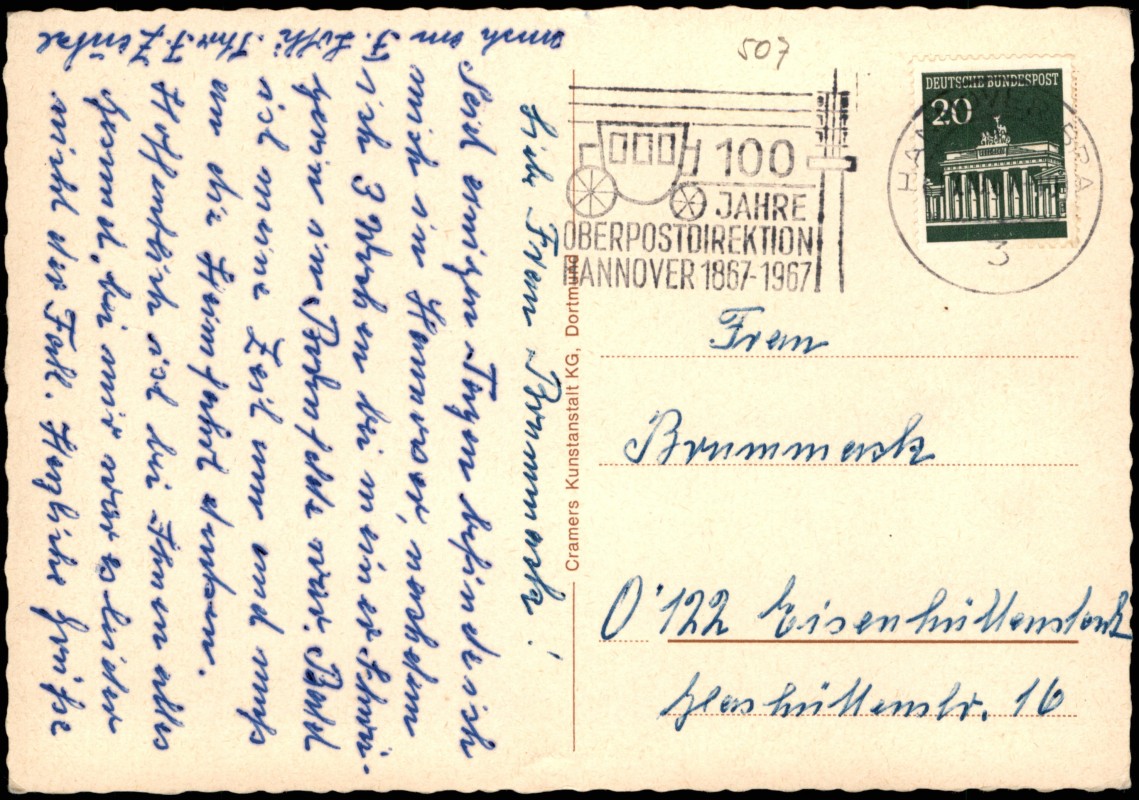 507
DEUTSCHE BUNDESPOST
20
HANNOVER
3
100
JAHRE
OBERPOSTDIREKTION
HANNOVER 1867-1967
Liebe Frau Brummack!
Seit einigen Tagen befinde ich
mich in Hannover, nachdem
ich 3 Wochen bei meiner Schwä-
gerin in war. Bald
ist meine Zeit um und muß
an die Heimfahrt denken.
Hoffentlich ist bei Ihnen alles
gesund, bei mir war es leider
nicht der Fall. Herzliche Grüße
auch an F. Ihre F.
Cramers Kunstanstalt KG, Dortmund
Frau
Brummack
O'122 Eisenhüttenstadt
Glashüttenstr. 16